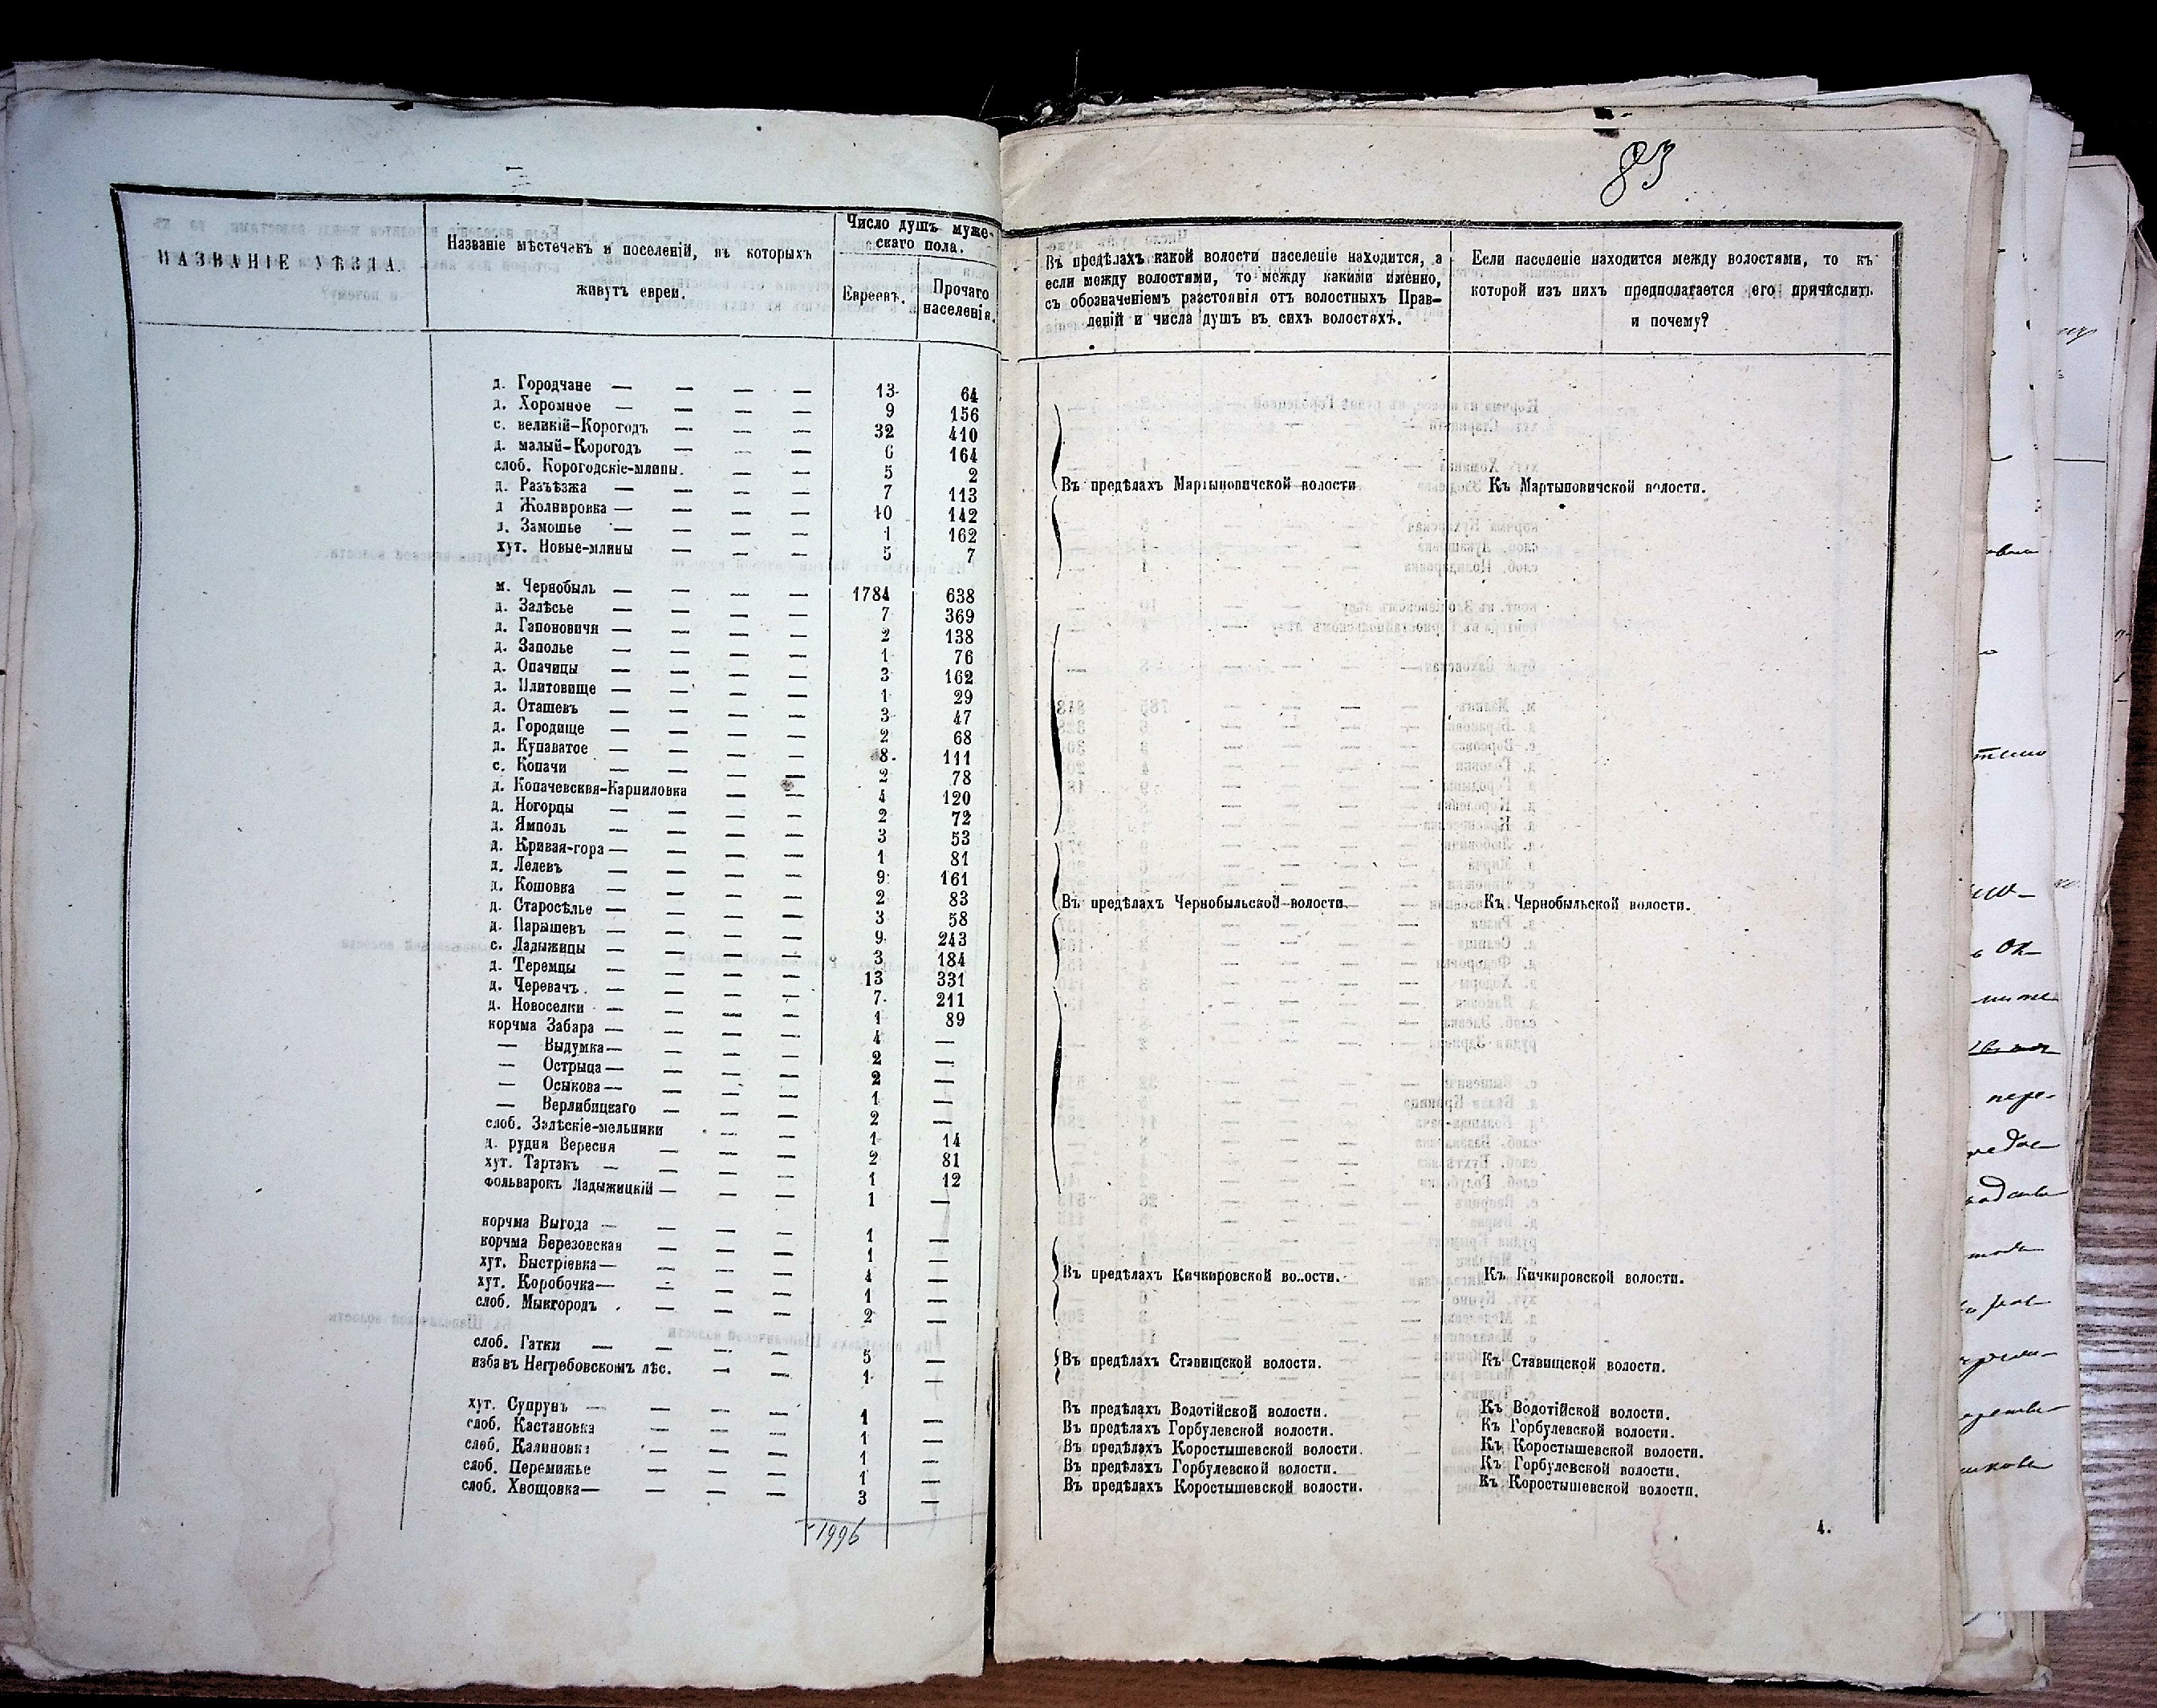 83
НАЗВАНІЕ УѢЗДА.
Названіе мѣстечекъ и поселеній, въ которыхъ
живутъ евреи.
Число душъ муже-
скаго пола.
Евреевъ.
Прочаго
населенія.
Въ предѣлахъ какой волости населеніе находится, а
если между волостями, то между какими именно,
съ обозначеніемъ разстоянія отъ волостныхъ Прав-
леній и числа душъ въ сихъ волостяхъ.
Если населеніе находится между волостями, то къ
которой изъ нихъ предполагается его причислить
и почему?
д. Городчане — — — — 13 64
д. Хоромное — — — — 9 156
с. великій-Корогодъ — — — 32 410
д. малый-Корогодъ — — — 6 164
слоб. Корогодскіе-млины. — — 5 2
д. Разъѣзжа — — — — 7 113
д. Жолнировка — — — — 10 142
д. Замошье — — — — 1 162
хут. Новые-млины — — — 5 7
Въ предѣлахъ Мартыновичской волости
Къ Мартыновичской волости.
м. Чернобыль — — — — 1784 638
д. Залѣсье — — — — 7 369
д. Гапоновичи — — — — 2 138
д. Заполье — — — — 1 76
д. Опачицы — — — — 3 162
д. Плитовище — — — — 1 29
д. Оташевъ — — — — 3 47
д. Городище — — — — 2 68
д. Купаватое — — — — 8 111
с. Копачи — — — — 2 78
д. Копачевская-Карпиловка — — 4 120
д. Ногорцы — — — — 2 72
д. Ямполь — — — — 3 53
д. Кривая-гора — — — — 1 81
д. Лелевъ — — — — 9 161
д. Кошовка — — — — 2 83
д. Старосѣлье — — — — 3 58
д. Парышевъ — — — — 9 243
с. Ладыжицы — — — — 3 184
д. Теремцы — — — — 13 331
д. Черевачъ — — — — 7 211
д. Новоселки — — — — 1 89
корчма Забара — — — — 4 —
— Выдумка — — — — 2 —
— Острыца — — — — 2 —
— Осыкова — — — — 1 —
— Верлибицкаго — — — 2 —
слоб. Залѣскіе-мельники — — 1 14
д. рудня Вересня — — — 2 81
хут. Тартакъ — — — — 1 12
фольварокъ Ладыжицкій — — — 1 —
Въ предѣлахъ Чернобыльской волости
Къ Чернобыльской волости.
корчма Выгода — — — — 1 —
корчма Березовская — — — 1 —
хут. Быстріевка — — — — 4 —
хут. Коробочка — — — — 1 —
слоб. Мыкгородъ — — — 2 —
Въ предѣлахъ Кичкировской волости.
Къ Кичкировской волости.
слоб. Гатки — — — — 5 —
изба въ Негребовскомъ лѣс. — — 1 —
Въ предѣлахъ Ставищской волости.
Къ Ставищской волости.
хут. Супрунъ — — — — 1 — Въ предѣлахъ Водотійской волости. Къ Водотійской волости.
слоб. Кастановка — — — 1 — Въ предѣлахъ Горбулевской волости. Къ Горбулевской волости.
слоб. Калиновка — — — 1 — Въ предѣлахъ Коростышевской волости. Къ Коростышевской волости.
слоб. Перемижье — — — 1 — Въ предѣлахъ Горбулевской волости. Къ Горбулевской волости.
слоб. Хвощовка — — — — 3 — Въ предѣлахъ Коростышевской волости. Къ Коростышевской волости.
1996
4.